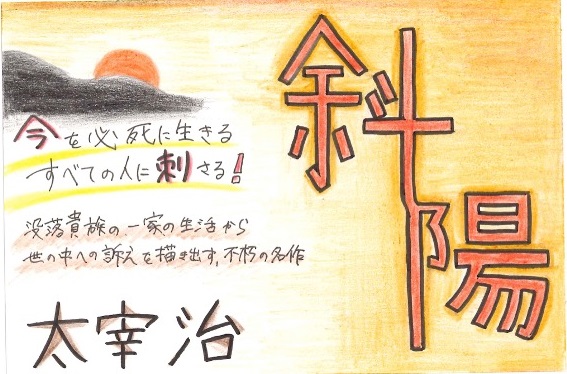 斜陽
今を必死に生きる
すべての人に刺さる!
没落貴族の一家の生活から
世の中への訴えを描き出す、不朽の名作
太宰治